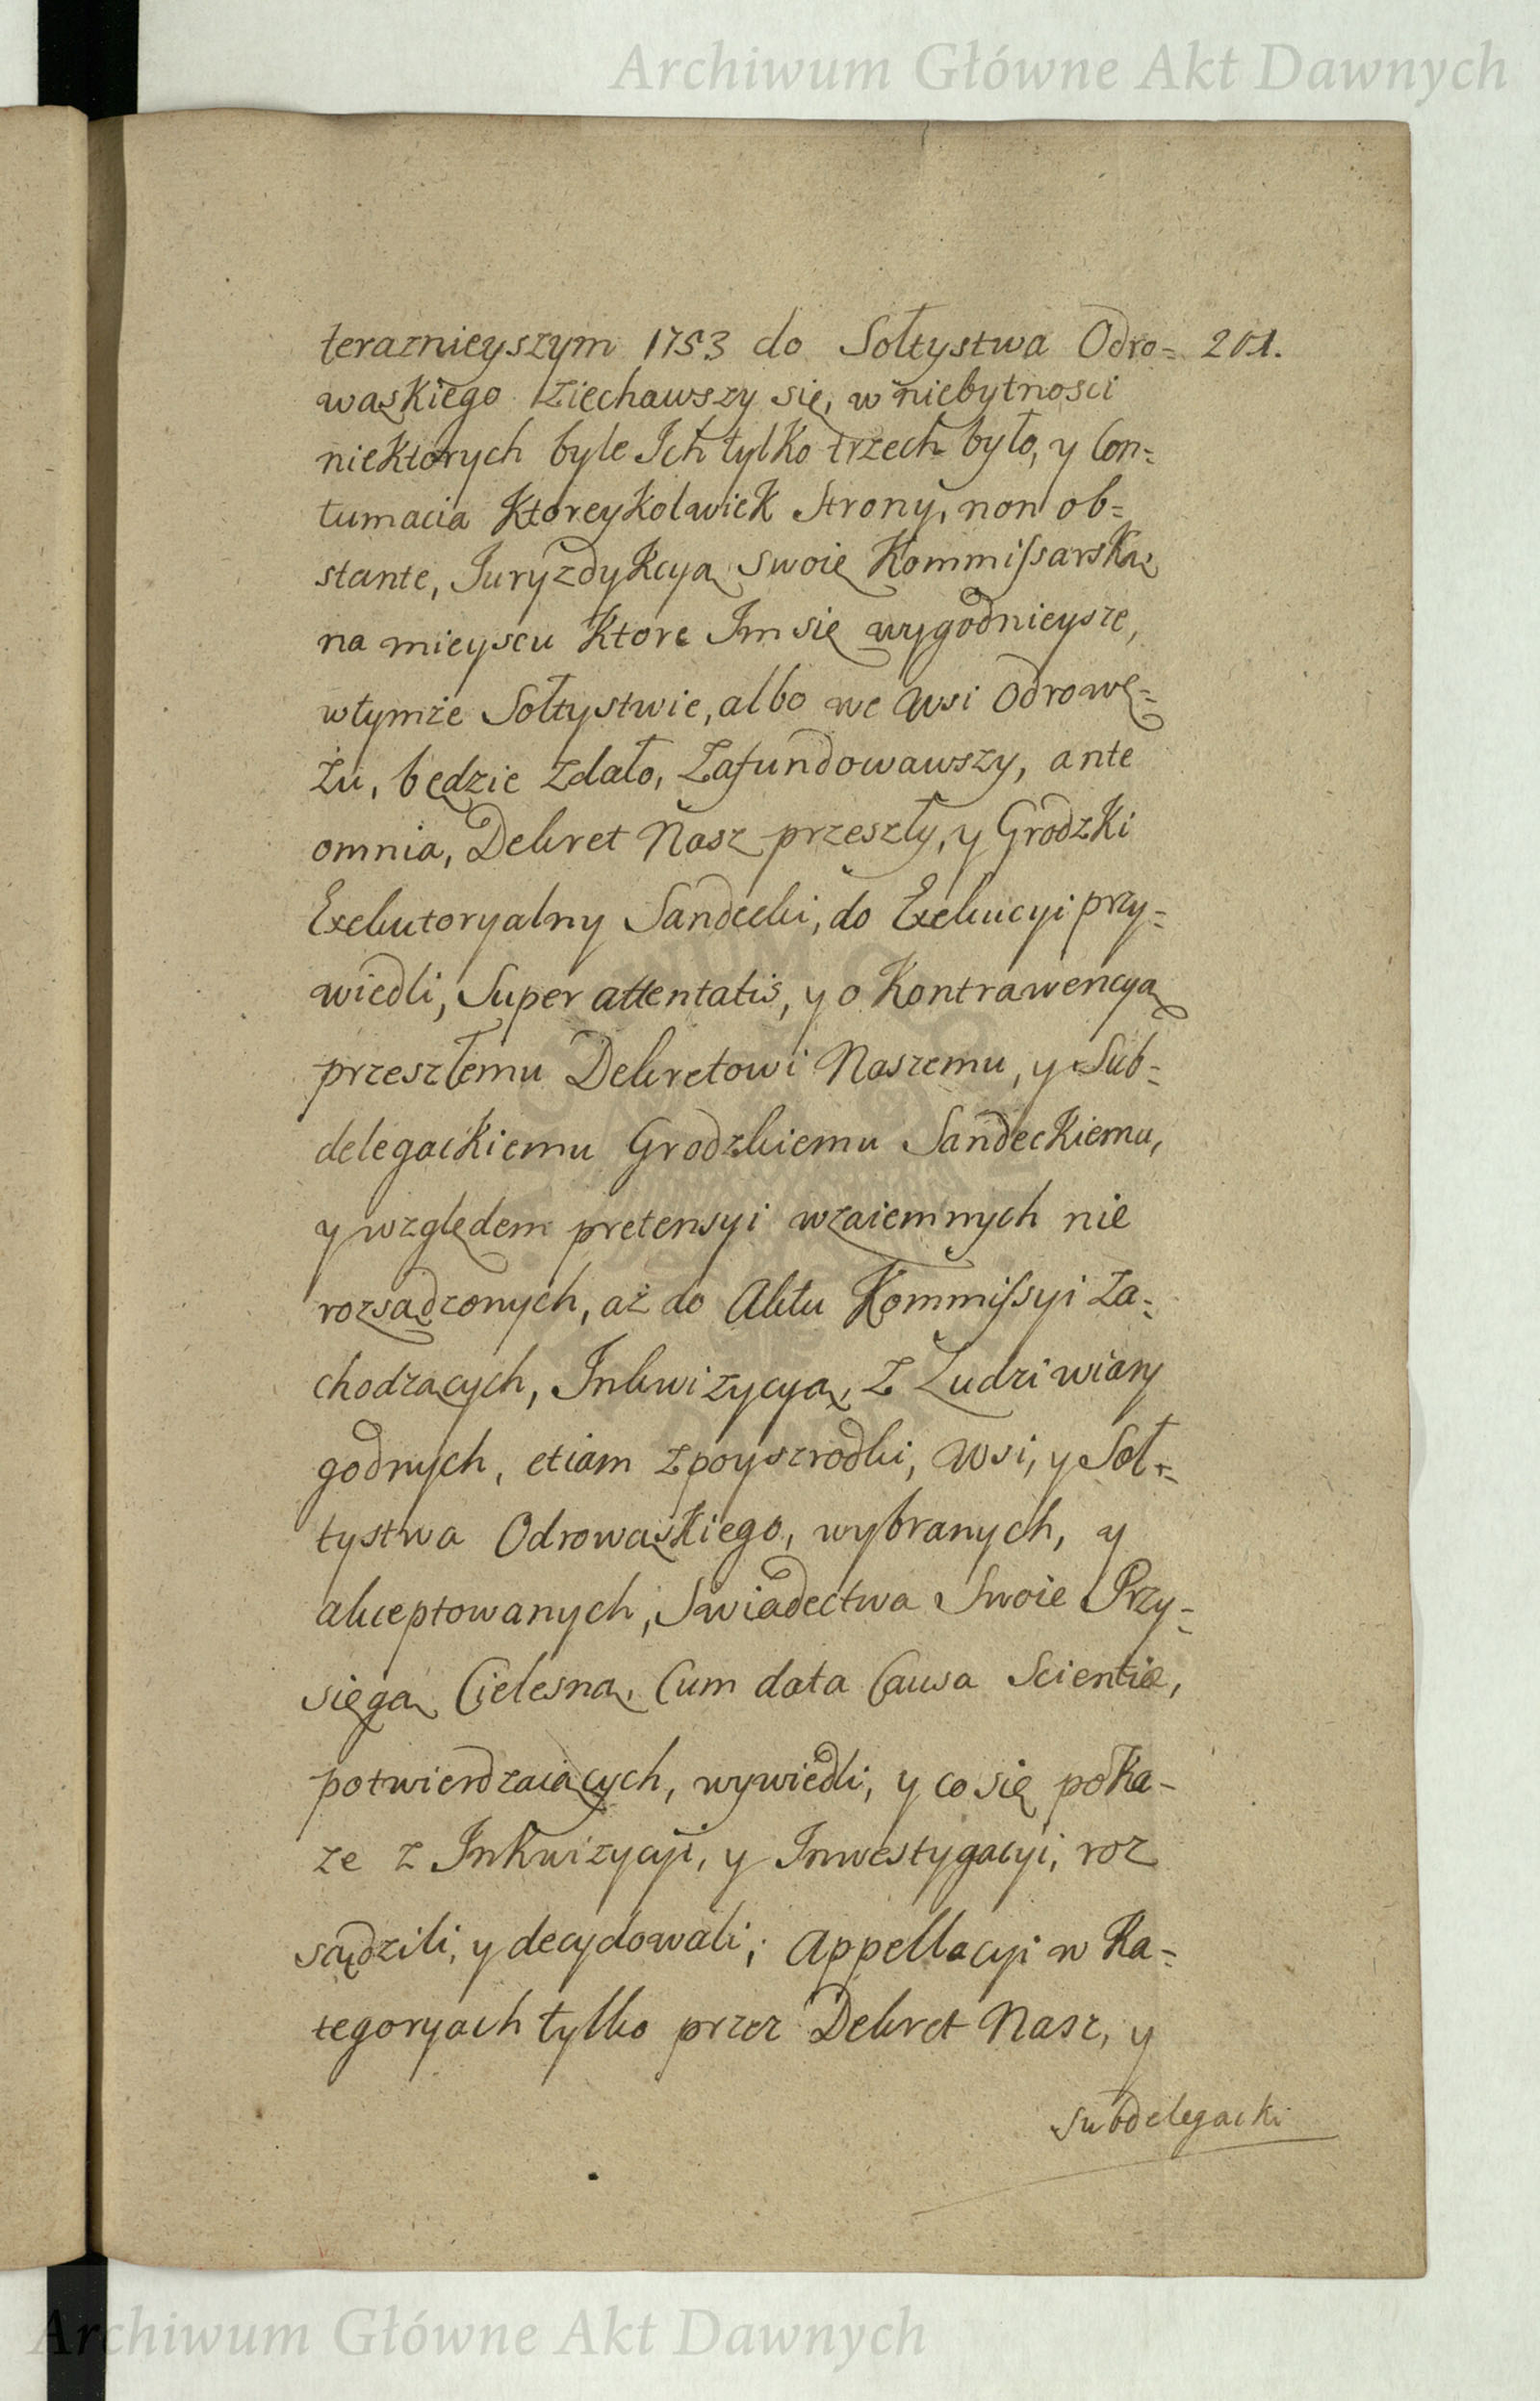 Archiwum Główne Akt Dawnych
teraznieyszym 1753 do Sołtystwa Odro= 201.
wąskiego ziechawszy się, w niebytnosci
niektorych byle Ich tylko trzech było, y Con=
tumacia ktoreykolwiek Strony, non ob=
stante, Juryzdykcyą swoię Kommissarską
na mieyscu ktore Im się wygodnieysze,
wtymże Sołtystwie, albo we Wsi Odrowę=
żu, będzie zdało, zafundowawszy, ante
omnia, Dekret Nasz przeszły, y Grodzki
Exekutoryalny Sandecki, do Exekucyi przy=
wiedli, Super attentatis, y o Kontrawencyą
przeszłemu Dekretowi Naszemu, y Sub=
delegackiemu Grodzkiemu Sandeckiemu,
y względem pretensyi wzaiemnych nie
rozsądzonych, aż do Aktu Kommissyi za=
chodzących, Inkwizycyą, z Ludzi wiary
godnych, etiam z poyszrodki, Wsi, y Soł=
tystwa Odrowąskiego, wybranych, y
akceptowanych, Swiadectwa Swoie Przy=
sięgą Cielesną, Cum data Causa Scientiæ,
potwierdzaiących, wywiedli, y co się poka=
ze z Inkwizycyi, y Inwestygacyi, roz
sądzili, y decydowali; Appellacyi w Ka=
tegoryach tylko przez Dekret Nasz, y
subdelegacki
Archiwum Główne Akt Dawnych